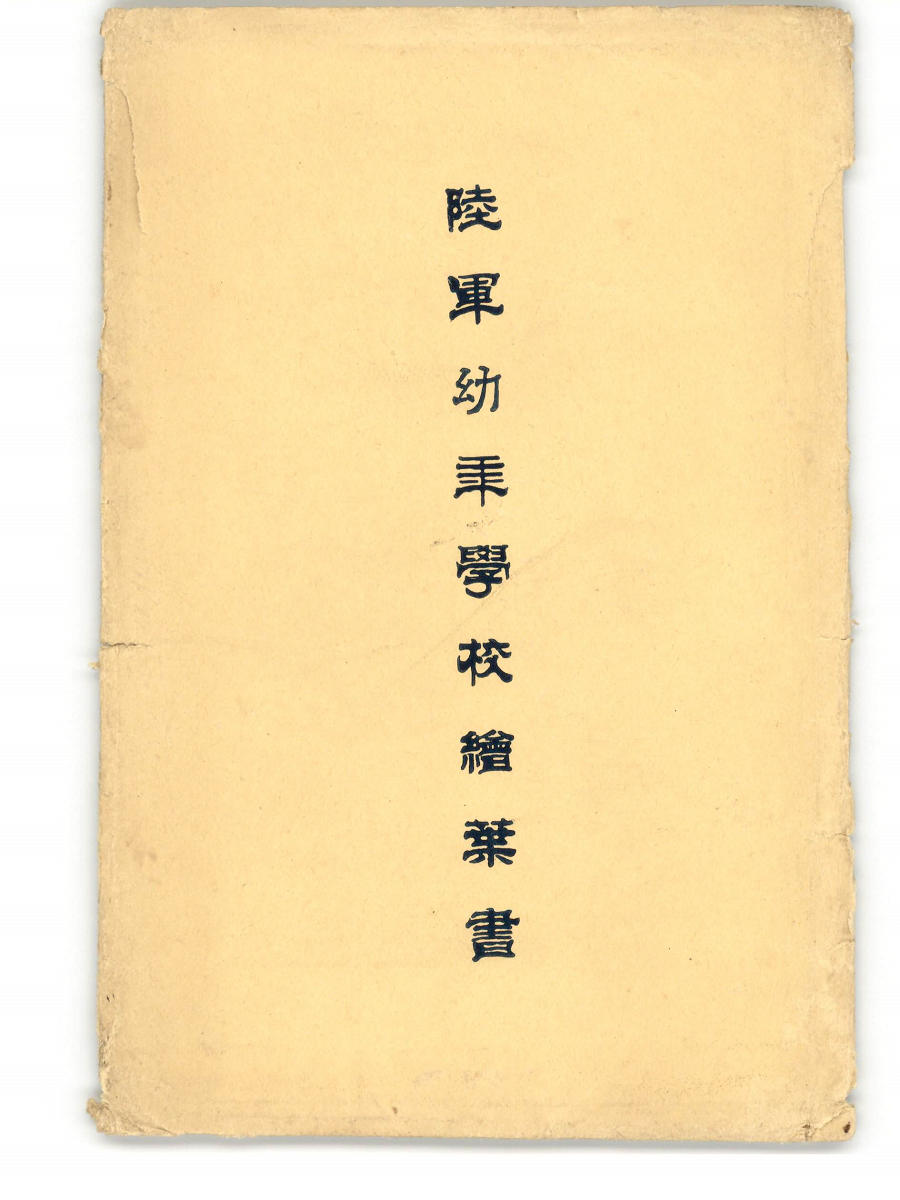 陸軍幼年學校繪葉書